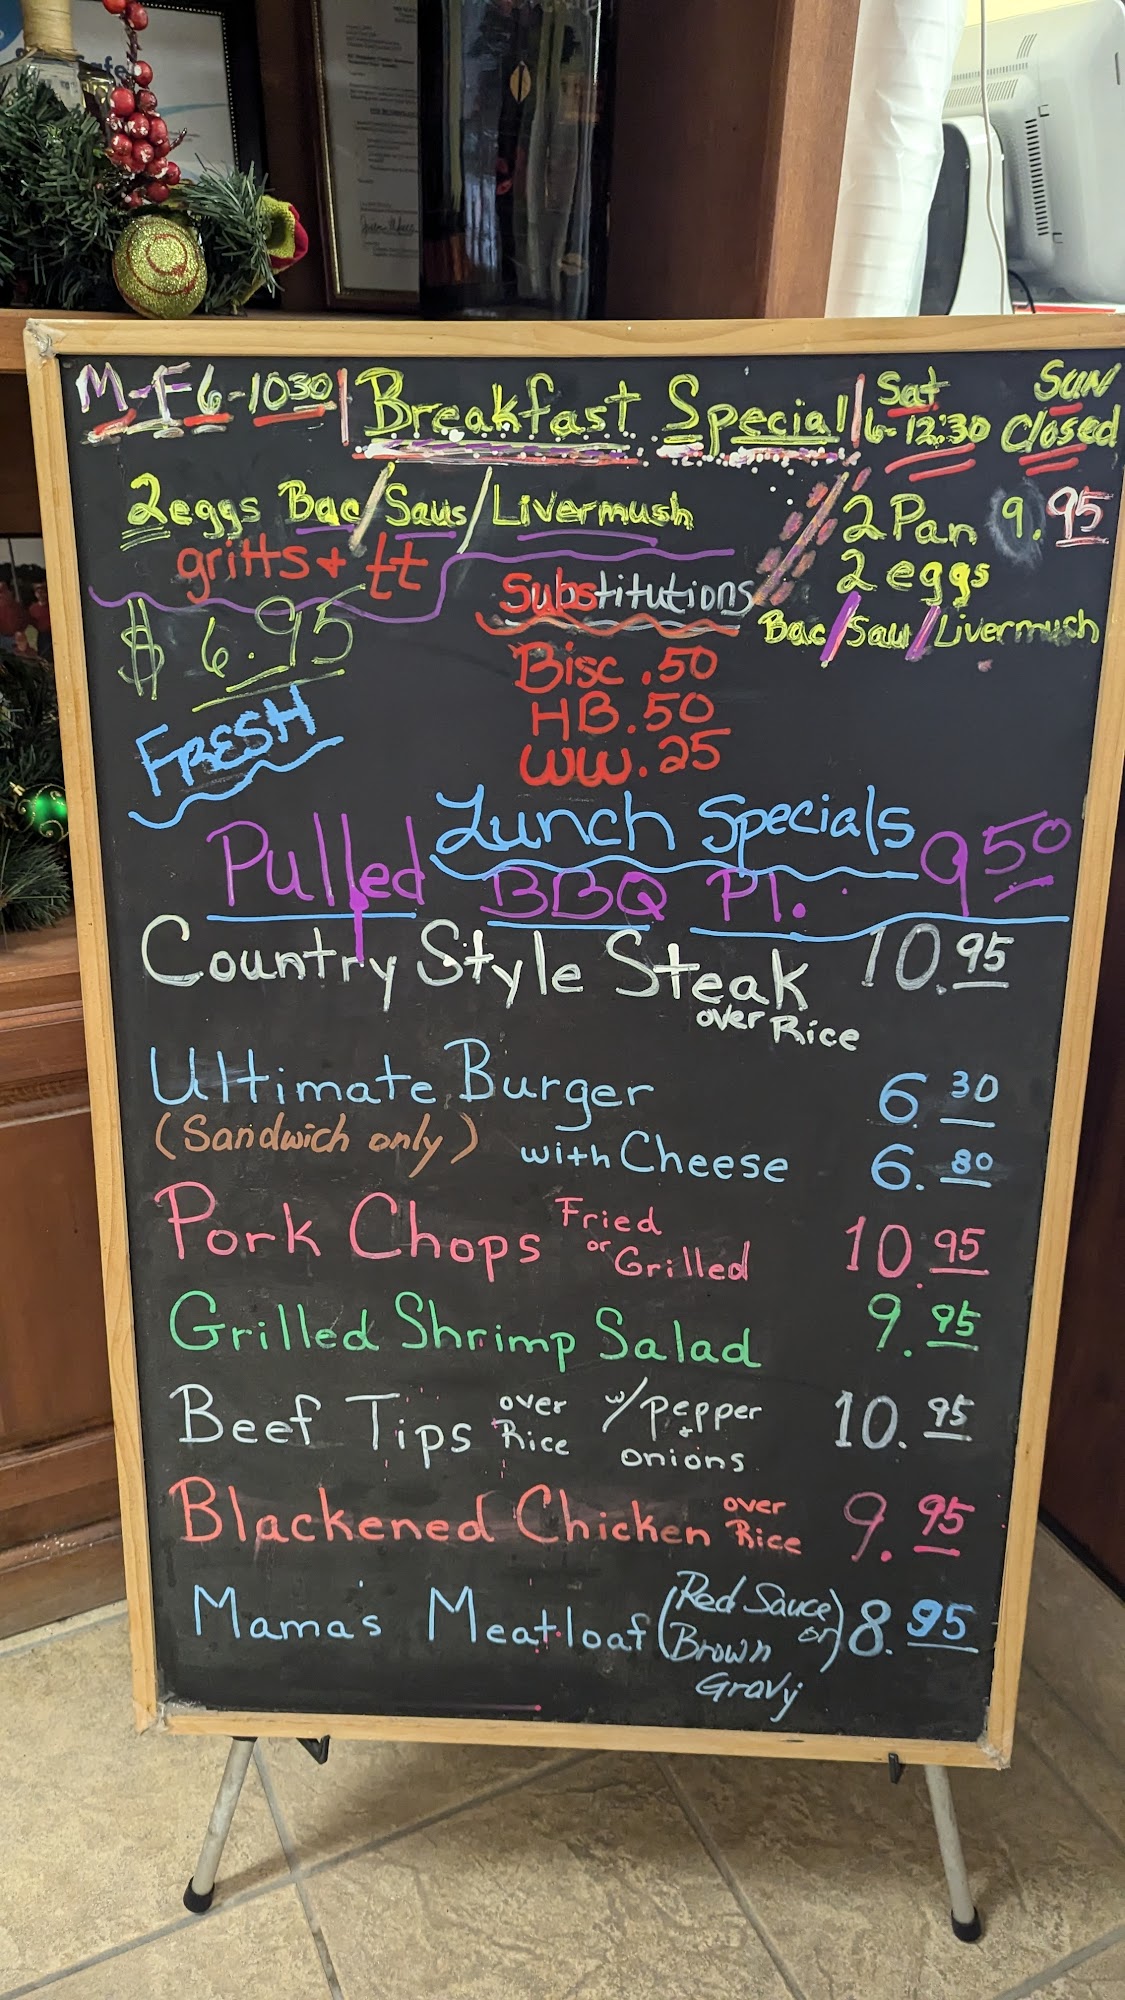 M-F 6-1030 Breakfast Special Sat 6-12:30 SUN Closed
2 eggs Bac/Saus/Livermush
gritts + tt
$ 6.95
2 Pan 9.95
2 eggs
Bac/Sau/Livermush
Substitutions
Bisc .50
HB .50
WW .25
FRESH
Lunch Specials
Pulled BBQ Pl. 9 50
Country Style Steak 10.95
over Rice
Ultimate Burger 6.30
(Sandwich only) with Cheese 6.80
Pork Chops Fried or Grilled 10.95
Grilled Shrimp Salad 9.95
Beef Tips over Rice w/ Pepper + onions 10.95
Blackened Chicken over Rice 9.95
Mama's Meatloaf (Red Sauce or Brown Gravy) 8.95